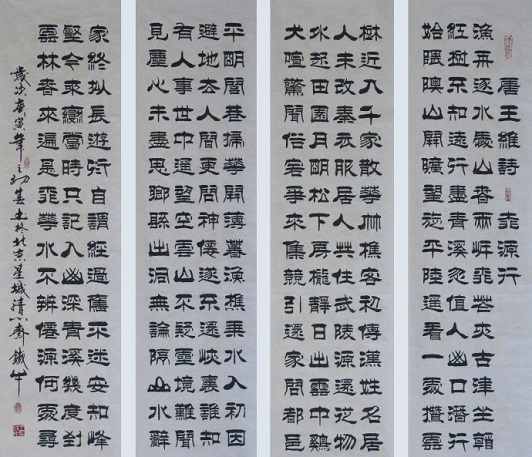 唐王維詩 桃源行
漁舟逐水愛山春兩岸桃花夾古津坐看
紅樹不知遠行盡青溪忽值人山口潛行
始隈隩山開曠望旋平陸遙看一處攢雲
樹近入千家散華竹樵客初傳漢姓名居
人未改秦衣服居人共住武陵源還從物
外起田園月明松下房櫳靜日出雲中雞
犬喧驚聞俗客爭來集競引還家問都邑
平明閭巷掃華開薄暮漁樵乘水入初因
避地去人間更聞神僊遂不還峽裏誰知
有人事世中遙望空雲山不疑靈境難聞
見塵心未盡思鄉縣出洞無論隔山水辭
家終擬長遊衍自謂經過舊不迷安知峰
壑今來變當時只記入山深青溪幾度到
雲林春來遍是桃華水不辨僊源何處尋
歲次庚寅年之初春書於北京星城清心齋鐵牛